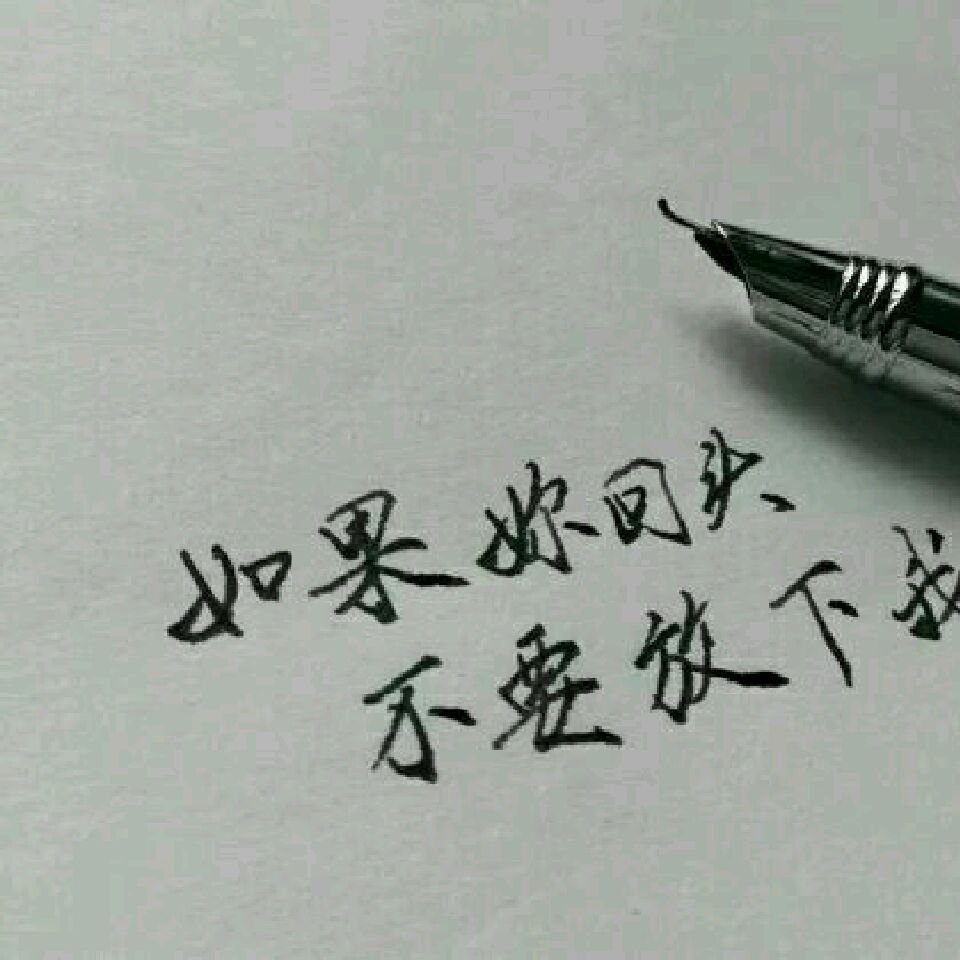 如果妳回头
不要放下我